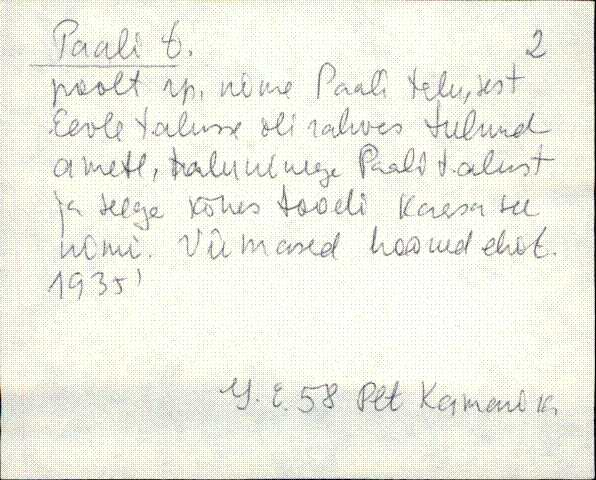 Paali t. 2
poolt rp. nime Paali talu, sest
Eevle talusse oli rahvas tulnud
ametl, talunimega Paali talust
ja selge kõnes toodi kaasa see
nimi. Viimased hooned ehit.
1935'
E. 58 Plt Kamarik